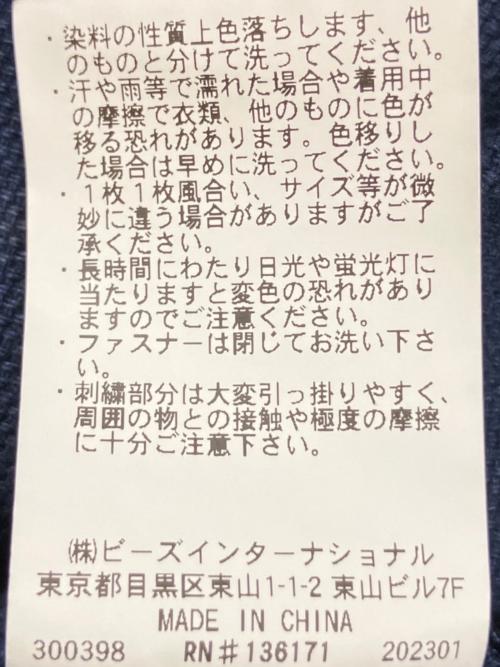 ・染料の性質上色落ちします、他
のものと分けて洗ってください。
・汗や雨等で濡れた場合や着用中
の摩擦で衣類、他のものに色が
移る恐れがあります。色移りし
た場合は早めに洗ってください。
・１枚１枚風合い、サイズ等が微
妙に違う場合がありますがご了
承ください。
・長時間にわたり日光や蛍光灯に
当たりますと変色の恐れがあり
ますのでご注意ください。
・ファスナーは閉じてお洗い下さ
い。
・刺繍部分は大変引っ掛りやすく、
周囲の物との接触や極度の摩擦
に十分ご注意下さい。
㈱ビーズインターナショナル
東京都目黒区東山1-1-2 東山ビル7F
MADE IN CHINA
300398 RN#136171 202301